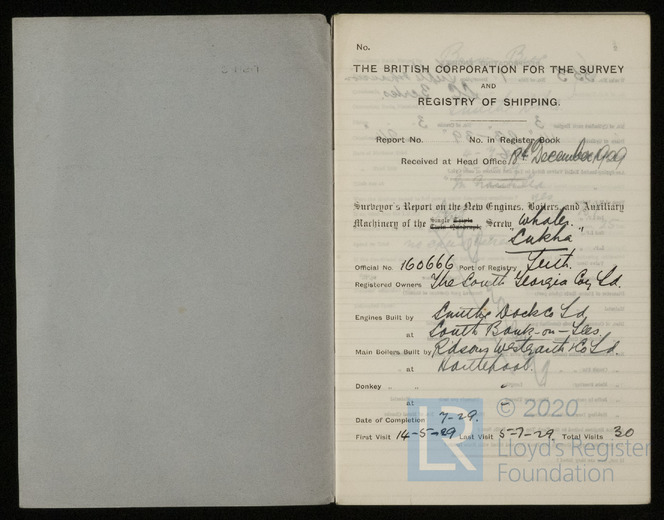 No.
THE BRITISH CORPORATION FOR THE SURVEY
AND
REGISTRY OF SHIPPING.
Report No. No. in Register Book
Received at Head Office 18th December 1929
Surveyor's Report on the New Engines, Boilers and Auxiliary
Machinery of the Single Triple Twin Quadruple Screw Whaler
"Sukha"
Official No. 160666 Port of Registry Leith.
Registered Owners The South Georgia Coy Ld.
Engines Built by Smiths Dock Co Ld
at South Bank-on-Tees
Main Boilers Built by Richardsons Westgarth & Co Ld.
at Hartlepool.
Donkey " " -
at -
Date of Completion 7-29.
First Visit 14-5-29 Last Visit 5-7-29. Total Visits 30
LR © 2020
Lloyd's Register
Foundation